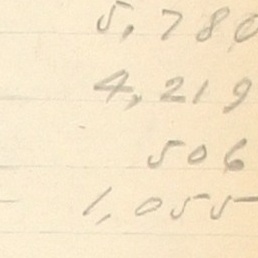 5,780
4,219
506
1,055